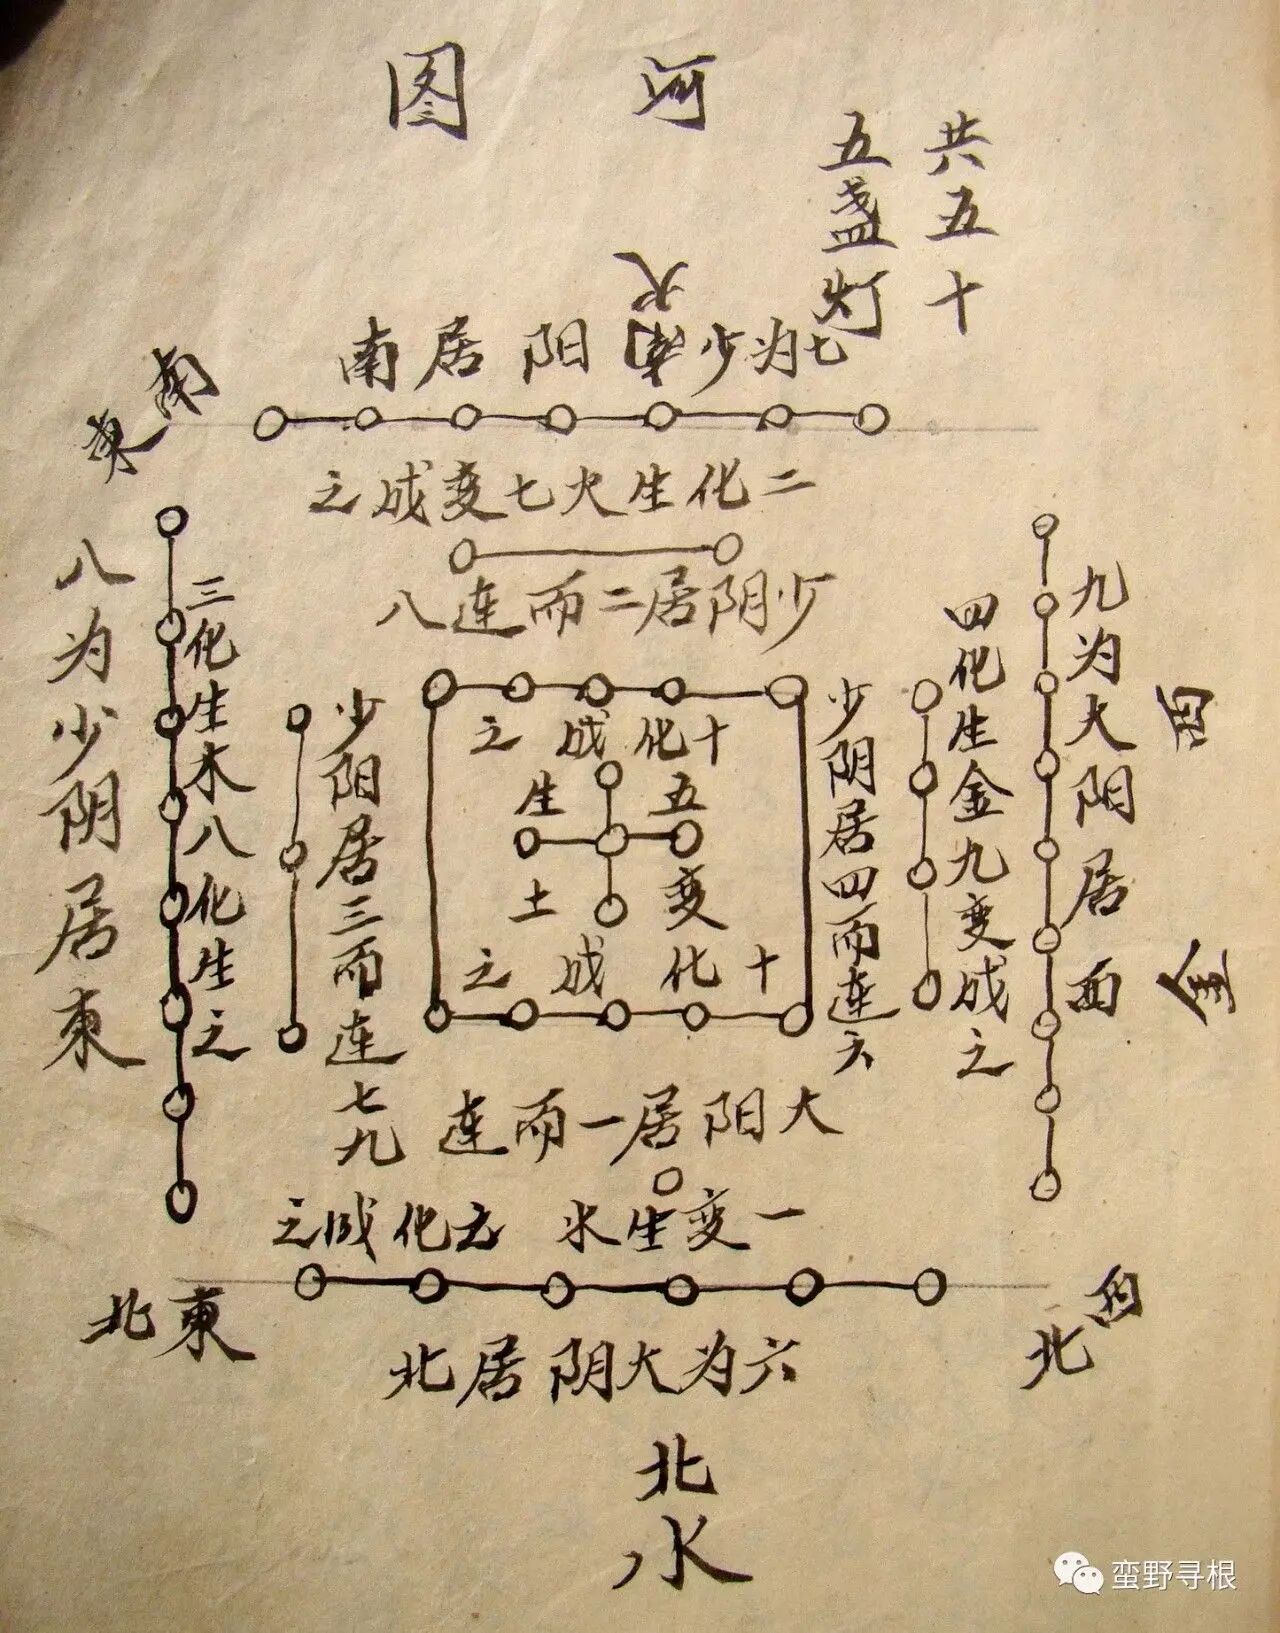 河图
共五十
五盏灯
火
南
七为少阳居南
東南
二化生火七变成之
少阴居二而连八
九为大阳居西
西
金
四化生金九变成之
少阴居四而连六
十化成之
五生
变土
十化成之
少阳居三而连七九
三化生木八化生之
八为少阴居東
大阳居一而连
一变生水
化成之
六为大阴居北
東北
西北
北
水
蛮野寻根